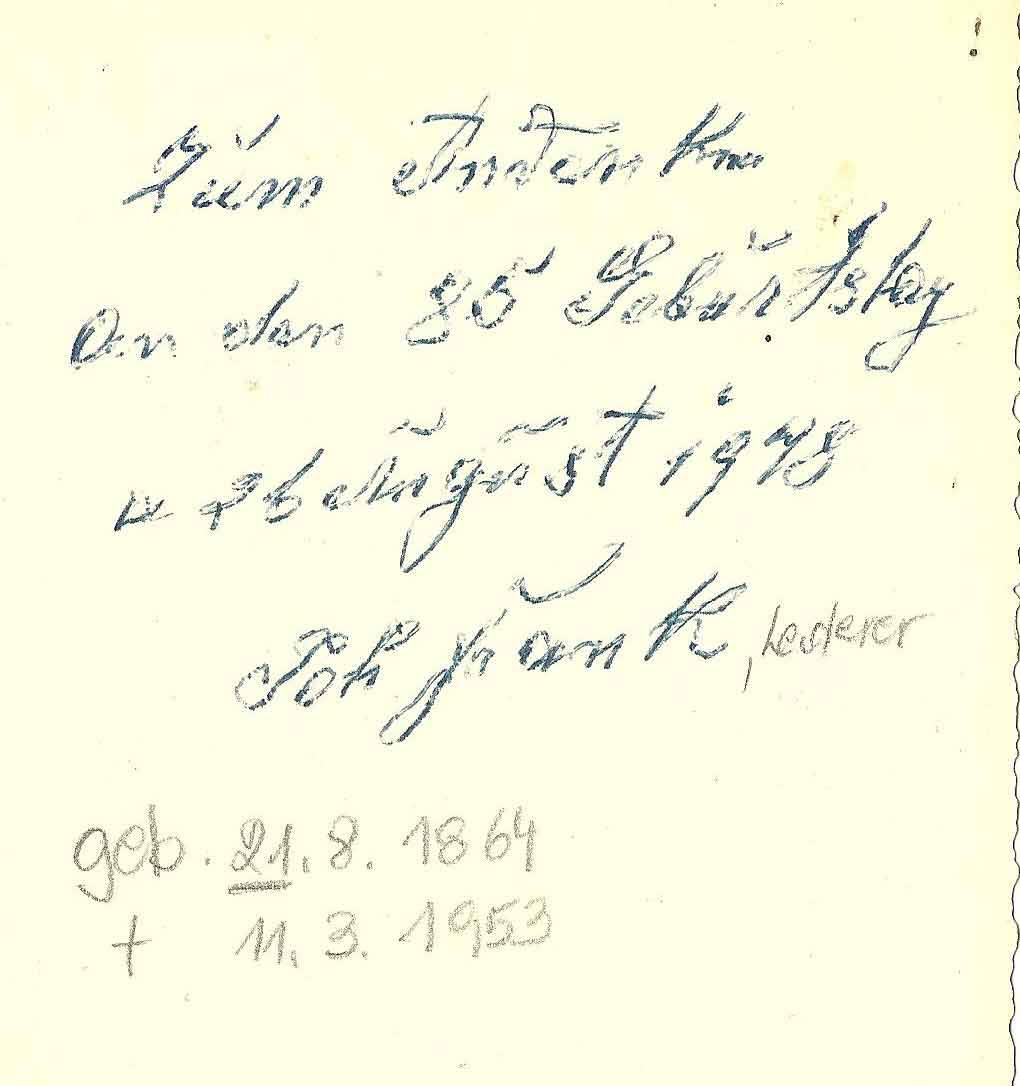 Zum Andenken
an den 85 Geburtstag
26 August 1948
Joh Frank, Lederer
geb. 21.8. 1864
† 11.3. 1953